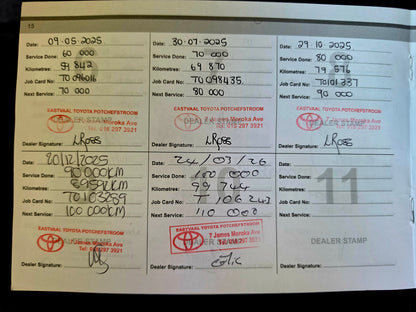 15
Date: 09.05.2025
Service Done: 60 000
Kilometres: 59 842
Job Card No: T0096016
Next Service: 70 000
EASTVAAL TOYOTA POTCHEFSTROOM
7 James Moroka Ave
Tel: 018 297 3921
DEALER STAMP
Dealer Signature: LRoss
Date: 30.07.2025
Service Done: 70 000
Kilometres: 69 870
Job Card No: T0098435
Next Service: 80 000
EASTVAAL TOYOTA POTCHEFSTROOM
7 James Moroka Ave
Tel: 018 297 3921
DEALER STAMP
Dealer Signature: LRoss
Date: 29.10.2025
Service Done: 80 000
Kilometres: 79 576
Job Card No: T0101337
Next Service: 90 000
EASTVAAL TOYOTA POTCHEFSTROOM
7 James Moroka Ave
Tel: 018 297 3921
DEALER STAMP
Dealer Signature: LRoss
Date: 20/12/2025
Service Done: 90 000km
Kilometres: 89592km
Job Card No: T0103259
Next Service: 100 000km
EASTVAAL TOYOTA POTCHEFSTROOM
7 James Moroka Ave
Tel: 018 297 3921
DEALER STAMP
Dealer Signature:
Date: 24/03/26
Service Done: 100 000
Kilometres: 99 744
Job Card No: T 106243
Next Service: 110 000
EASTVAAL TOYOTA POTCHEFSTROOM
7 James Moroka Ave
Tel: 018 297 3921
DEALER STAMP
Dealer Signature:
Date:
Service Done:
Kilometres:
Job Card No:
Next Service:
11
DEALER STAMP
Dealer Signature: